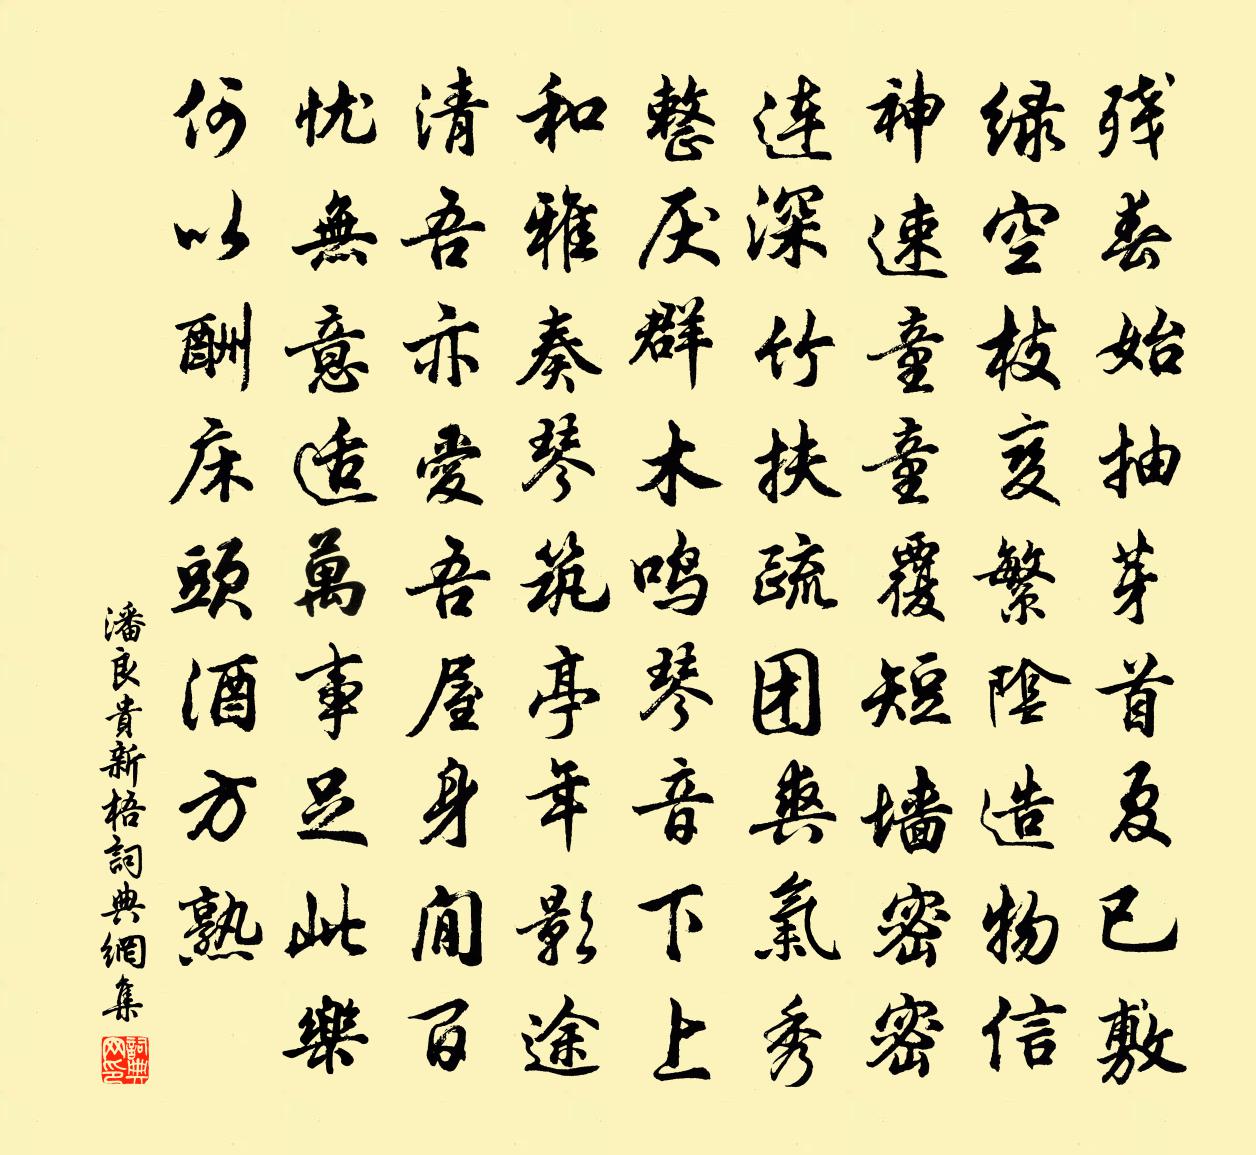 残春始抽芽首夏已敷
绿空枝变繁陰造物信
神速童童覆短墙密密
連深竹扶疏团爽氣秀
整厌群木鸣琴音下上
和雅奏琴筑亭年影途
清吾亦愛吾屋身閒百
忧無意适萬事足此樂
何以酬床頭酒方熟
潘良貴新梧詞典網集
詞典网印